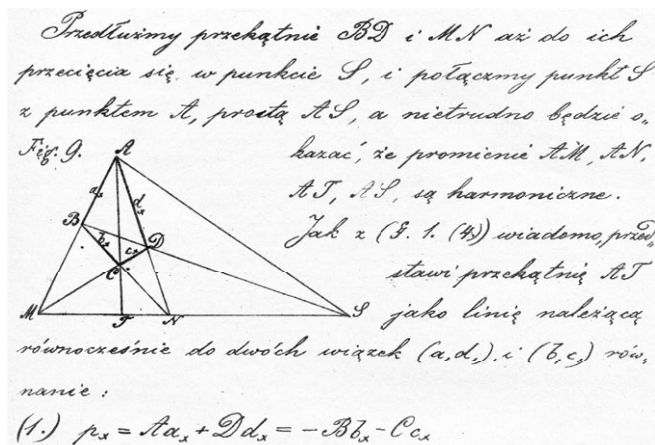 Przedłużmy przekątnie BD i MN aż do ich
przecięcia się w punkcie S, i połączmy punkt S
z punktem A, prostą AS, a nietrudno będzie o„
Fig. 9.
kazać, że promienie AM, AN,
AT, AS, są harmoniczne.
Jak z (§. 1. (4)) wiadomo, przed„
stawi przekątnię AT
jako linię należącą
A
aₓ
dₓ
B
bₓ
cₓ
D
C
M
T
N
S
równocześnie do dwóch wiązek (a, d,) i (b, c,) rów„
nanie :
(1.) pₓ = Aaₓ + Ddₓ = -Bbₓ - Ccₓ